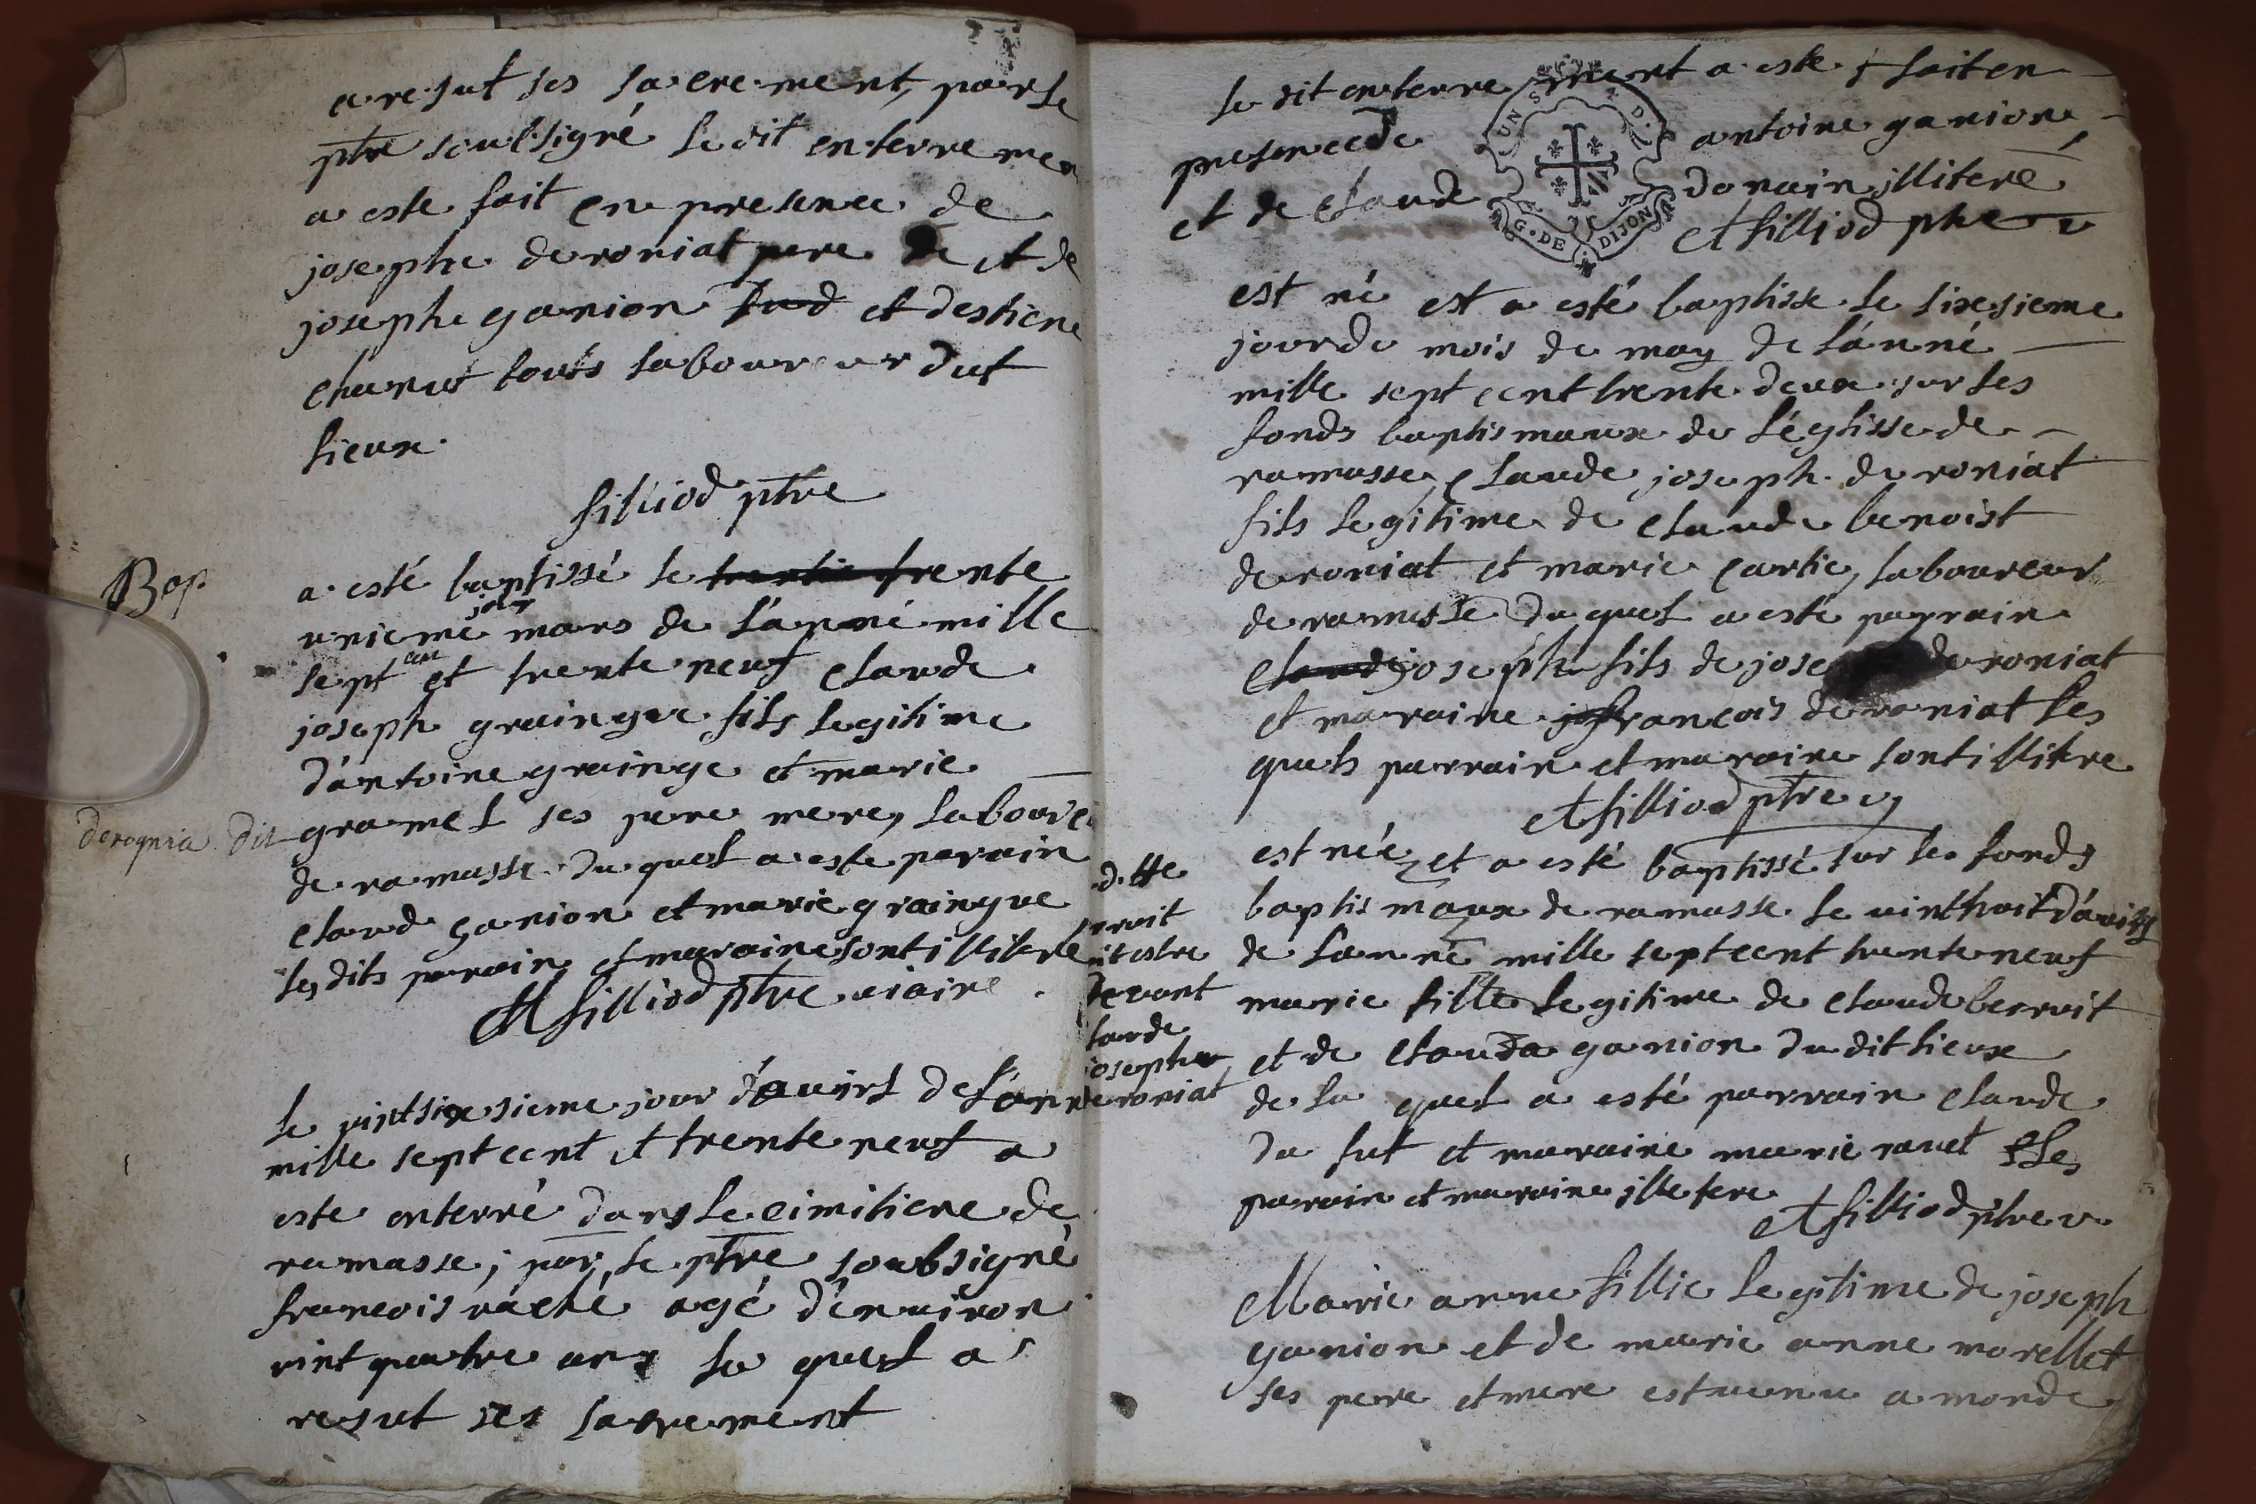 a resut ses sacrement, par le
ptre soubsigné le dit enterremen
a este fait en presence de
josephe deroniat pere et de
josephe ganion et destiene
chanut touts laboureur dut
lieux.
filliod ptre
Bap
a esté baptissé le trente
unieme jour mars de l'anné mille
sept cen et trente neuf claude
joseph grainger fils legitime
d'antoine grainge et marie
derognia dit gramel ses pere mere, laboure
de ramasse du quel a este parain
claud ganion et marie graingue
les dits parain et maraine sont illitere
filliod ptre viaire
le vintsixesieme jour d'avirl de l'ann
mille sept cent et trente neuf a
este enterré dans le cimitiere de
ramasse, par le ptre soubsigné
francois vaché agé d'environ
vint quatre ans le quel a
resut ses sacrement
le dit enterrement a este fait en
presence de antoine ganion
et de claud donain illiteré
filliod ptre v
est né et a esté baptisse le sixesieme
jour de mois de may de l'anné
mille sept cent trente deux sur les
fonds baptismaux de l'églisse de
ramasse, claude joseph deroniat
fils legitime de claude benoist
deroniat et marie cartie, laboureur
de ramasse du quel a esté parrain
claude joseph fils de jose deroniat
et maraine francois deroniat les
quels parrain et maraine sont illitere
filliod ptre v
est née et a esté baptissé sur les fonds
baptismaux de ramasse le vint huit d'avirl
de l'anné mille sept cent trente neuf
marie fille legitime de claude benoit
et de clauda ganion du dit lieux
de la quel a esté parrain claude
du fut et maraine marie ravet les
parain et maraine illetere
filliod ptre v
ditte
devant
josepher
deroniat
Marie anne fillie legitime de joseph
ganion et de marie anne morellet
ses pere et mere est venu a monde
UN S
G. DE DIJON